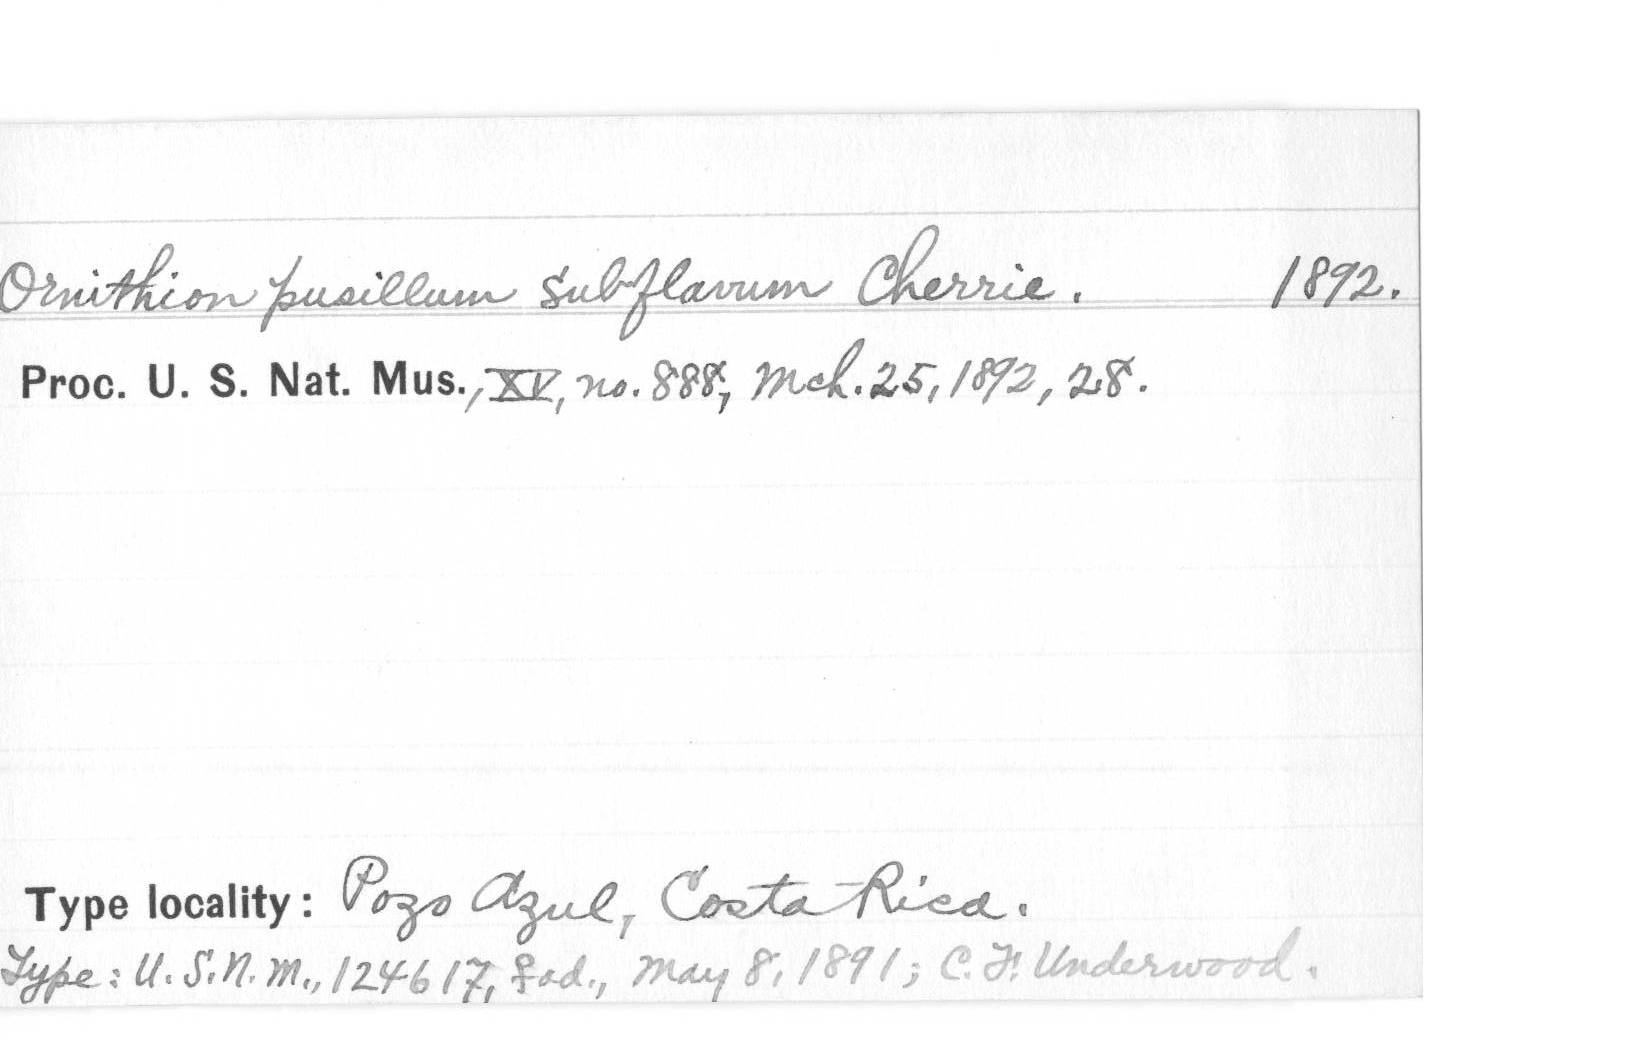 Ornithion pusillum subflavum Cherrie. 1892.
Proc. U. S. Nat. Mus., XV, no. 888, Mch. 25, 1892, 28.
Type locality: Pozo Azul, Costa Rica.
Type: U.S.N.M., 124617, ♀ ad., May 8, 1891; C. F. Underwood.